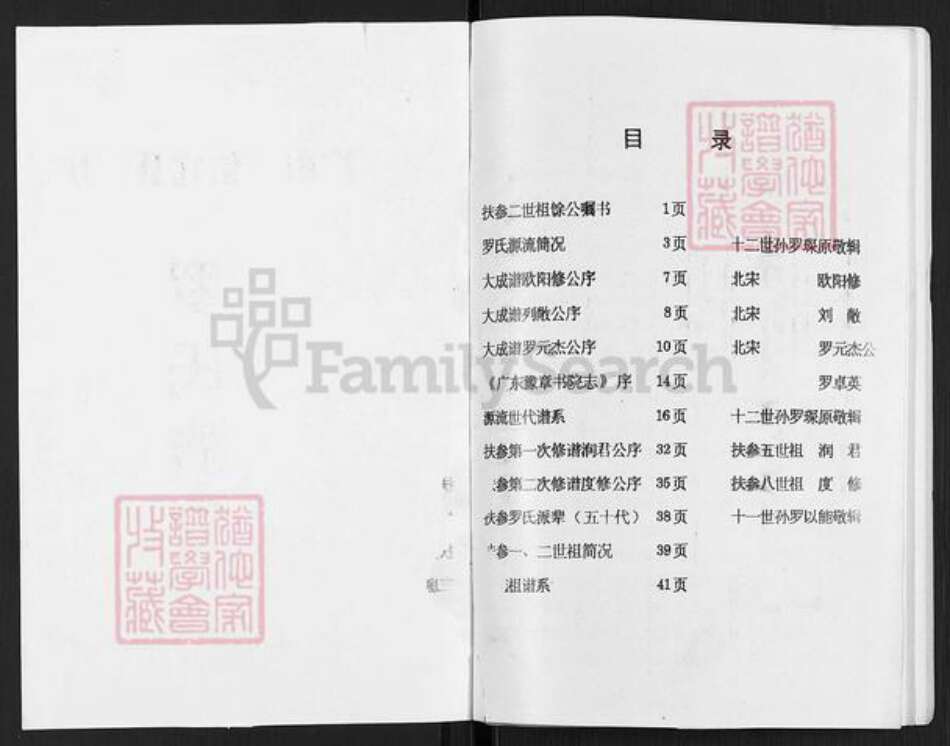 目 录
扶参二世祖馀公嘱书 1页
罗氏源流简况 3页 十二世孙罗琛原敬辑
大成谱欧阳修公序 7页 北宋 欧阳修
大成谱列敞公序 8页 北宋 刘 敞
大成谱罗元杰公序 10页 北宋 罗元杰公
《广东豫章书院志》序 14页 罗卓英
源流世代谱系 16页 十二世孙罗琛原敬辑
扶参第一次修谱润君公序 32页 扶参五世祖 润 君
参第二次修谱度修公序 35页 扶参八世祖 度 修
扶参罗氏派辈（五十代） 38页 十一世孙罗以能敬辑
参一、二世祖简况 39页
祖谱系 41页
猶他家
譜學會
收藏
猶他家
譜學會
收藏
FamilySearch